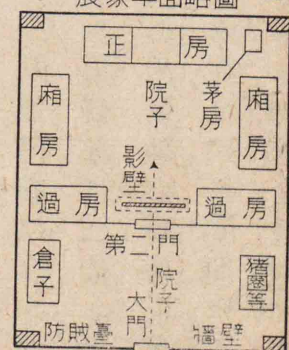 農家平面略圖
正房
茅房
院子
廂房
廂房
影壁
過房
過房
第二門
倉子
院子
猪圈等
大門
防賊臺
牆壁